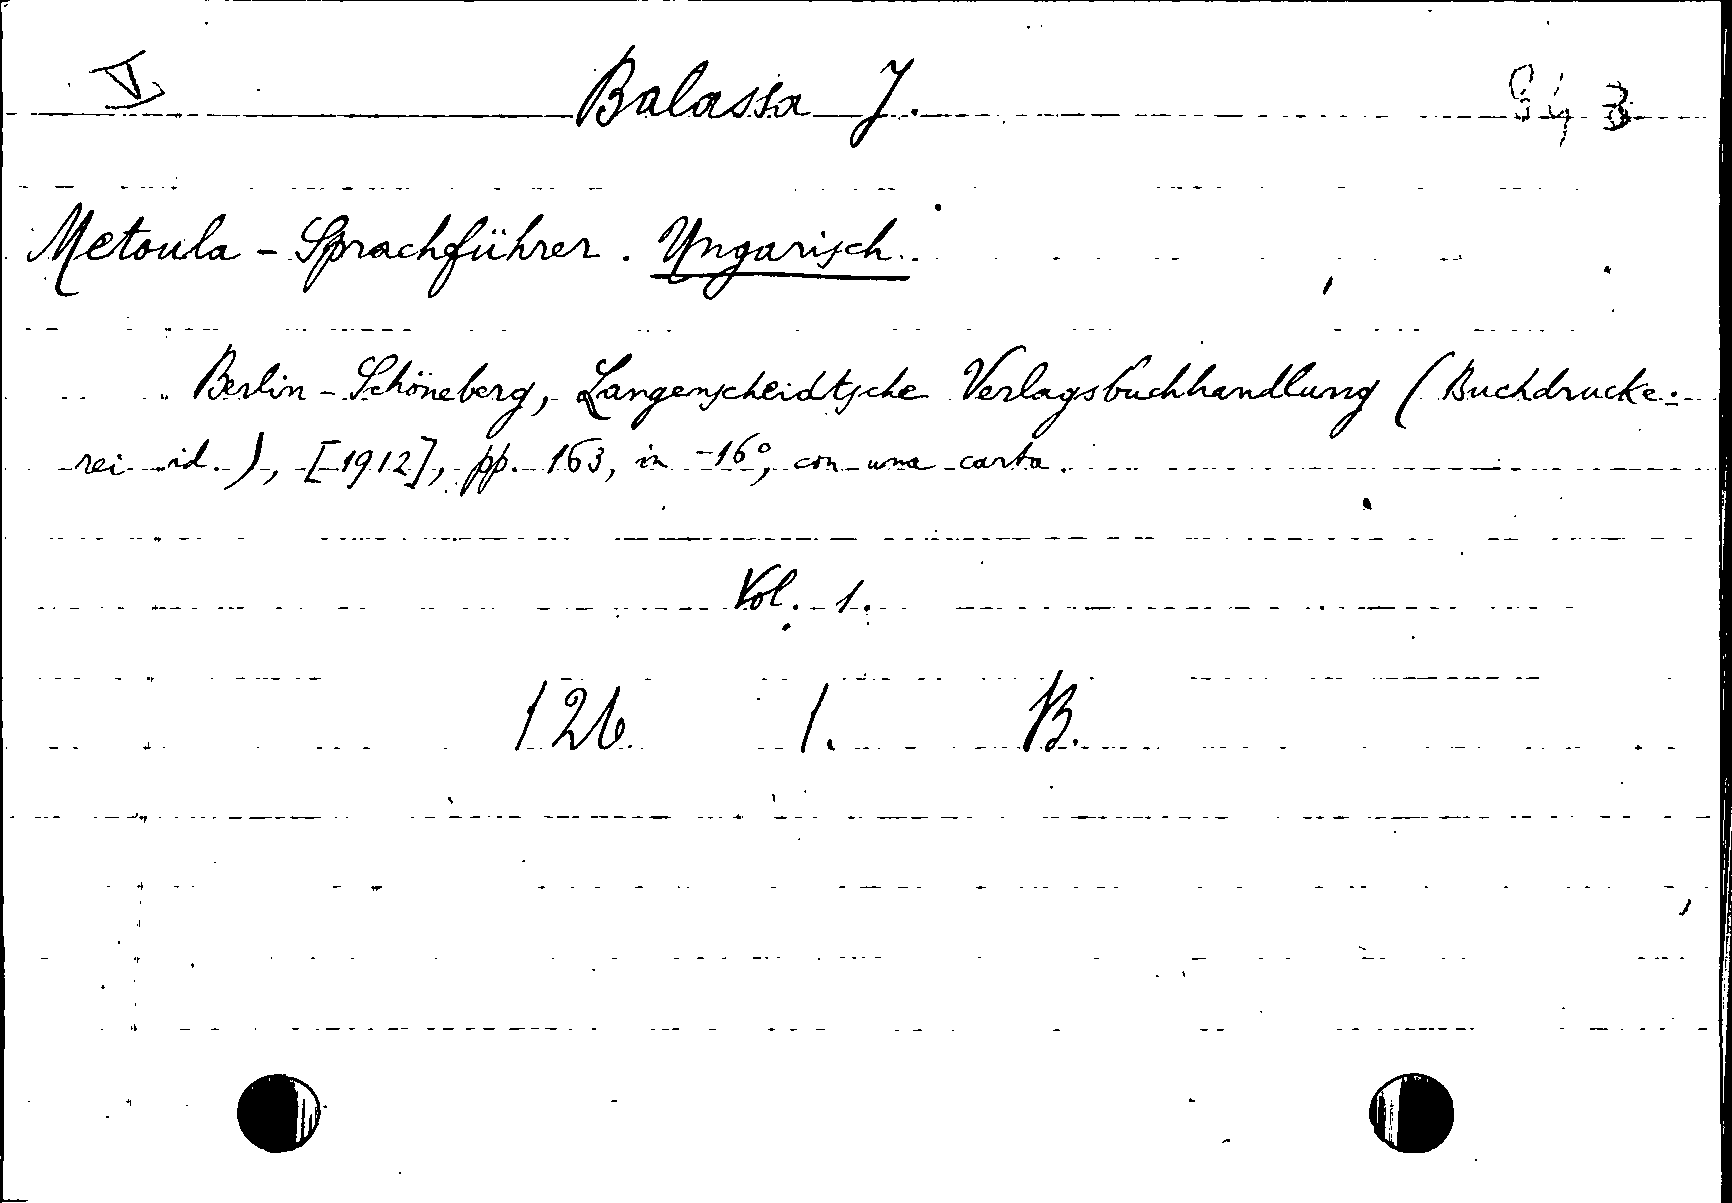 V Balassa J.
Metoula - Sprachführer. Ungarisch.
Berlin - Schöneberg, Langenscheidtsche Verlagsbuchhandlung (Buchdrucke-
rei id.), [1912], pp. 163, in -16°, con una carta.
Vol. 1.
126. 1. B.